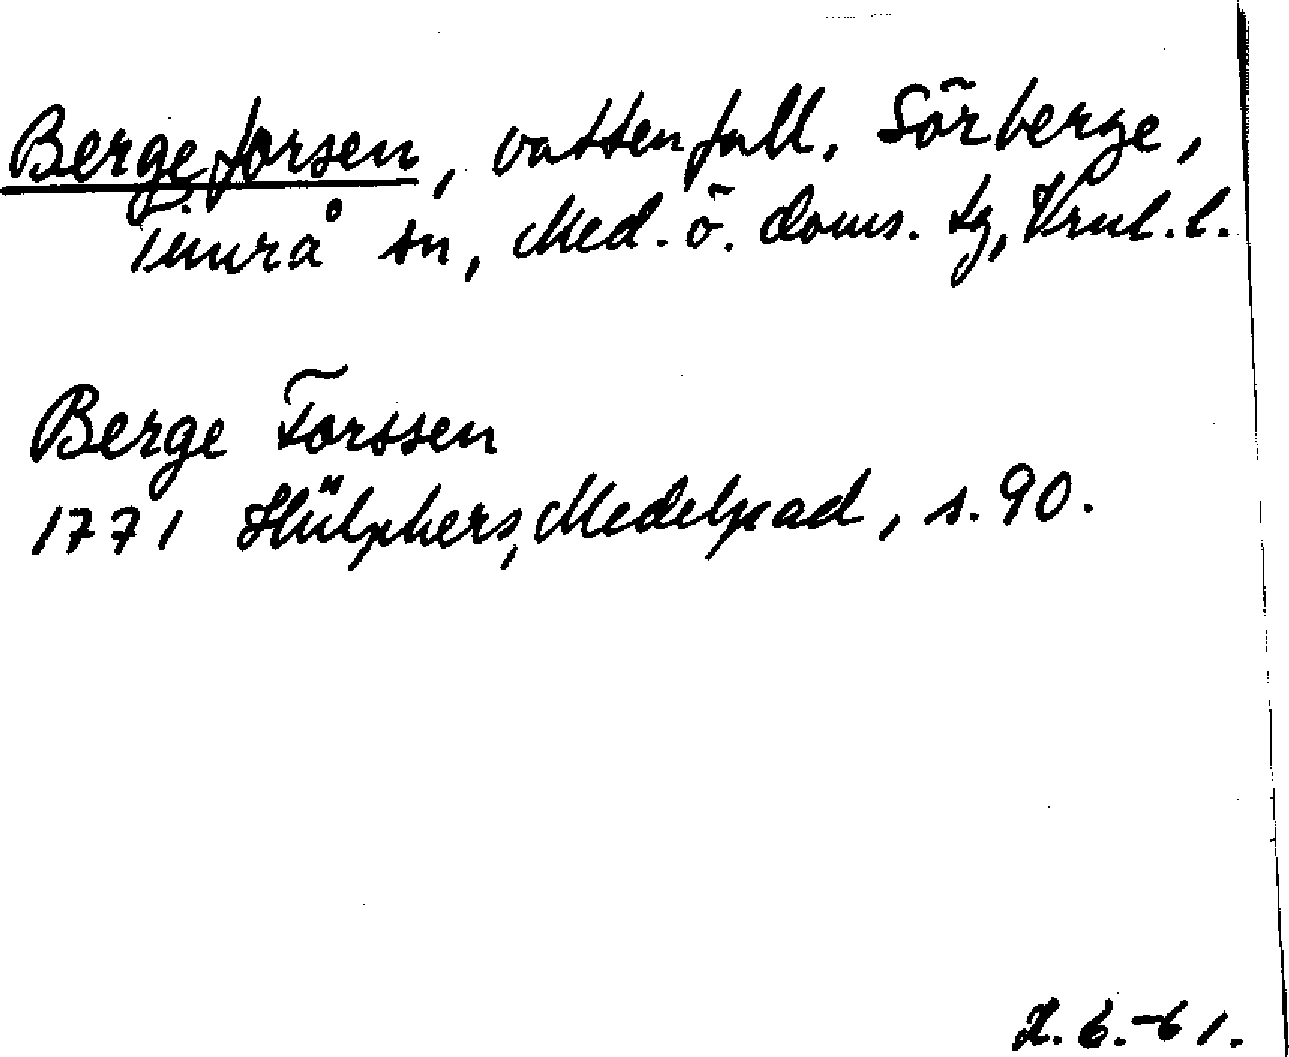 Bergeforsen, vattenfall. Sörberge,
Timrå sn, Med. ö. doms. tg, Vrnl. l.
Berge Forssen
1771 Hülphers, Medelpad, s. 90.
2.6.-61.